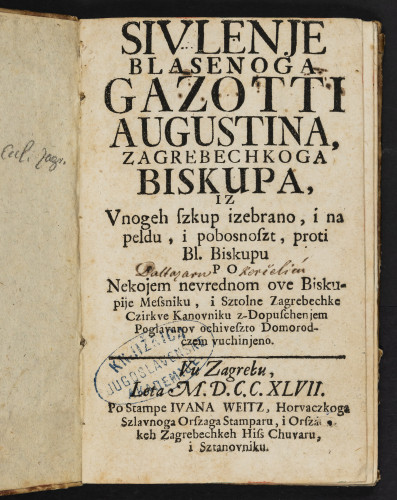 SIVLENJE
BLASENOGA
GAZOTTI
AUGUSTINA,
ZAGREBECHKOGA
BISKUPA,
IZ
Vnogeh szkup izebrano, i na
peldu, i pobosnoszt, proti
Bl. Biskupu
PO
Nekojem nevrednom ove Bisku-
pije Mesniku, i Sztolne Zagrebechke
Czirkve Kanovniku z-Dopuschenjem
Poglavarov ochiveszto Domorod-
czem vuchinjeno.
KNJIŽNICA
JUGOSLAVENSKE
Vu Zagrebu,
Leta M.D.C.C.XLVII.
Po Stampe IVANA WEITZ, Horvaczkoga
Szlavnoga Orszaga Stamparu, i Orsza
keh Zagrebechkeh Hiss Chuvaru,
i Sztanovniku.